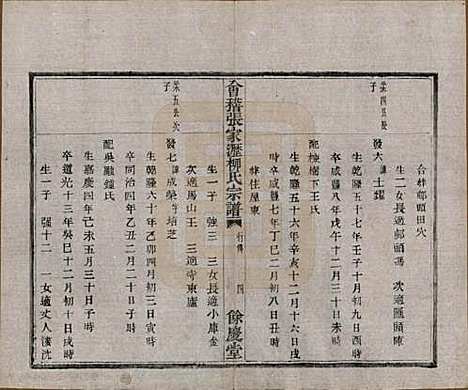 合葬鄅前田穴
生二女長適鄅頭馮 次適匯頭陳
榮四長殷子
發大 諱士燿
生乾隆五十七年壬子十月初九日酉時
卒咸豐八年戊午十二月三十日未時
配棟樹下王氏
生乾隆五十六年辛亥十二月十六日戌
時卒咸豐七年丁巳十二月初八日丑時
葬住屋東
會稽張家瀝柳氏宗譜
行傳
四
餘慶堂
榮五長次子
發七 諱成榮 培芝
生乾隆六十年乙卯四月初三日寅時
卒同治四年乙丑二月二十二日子時
配吳融鍾氏
生嘉慶四年己未五月三十日子時
卒道光十三年癸巳十二月初十日戌時
生一子 強十二 一女適丈人漊沈
生一子 強三 三女長適小庫金
次適馬山王 三適寺東盧